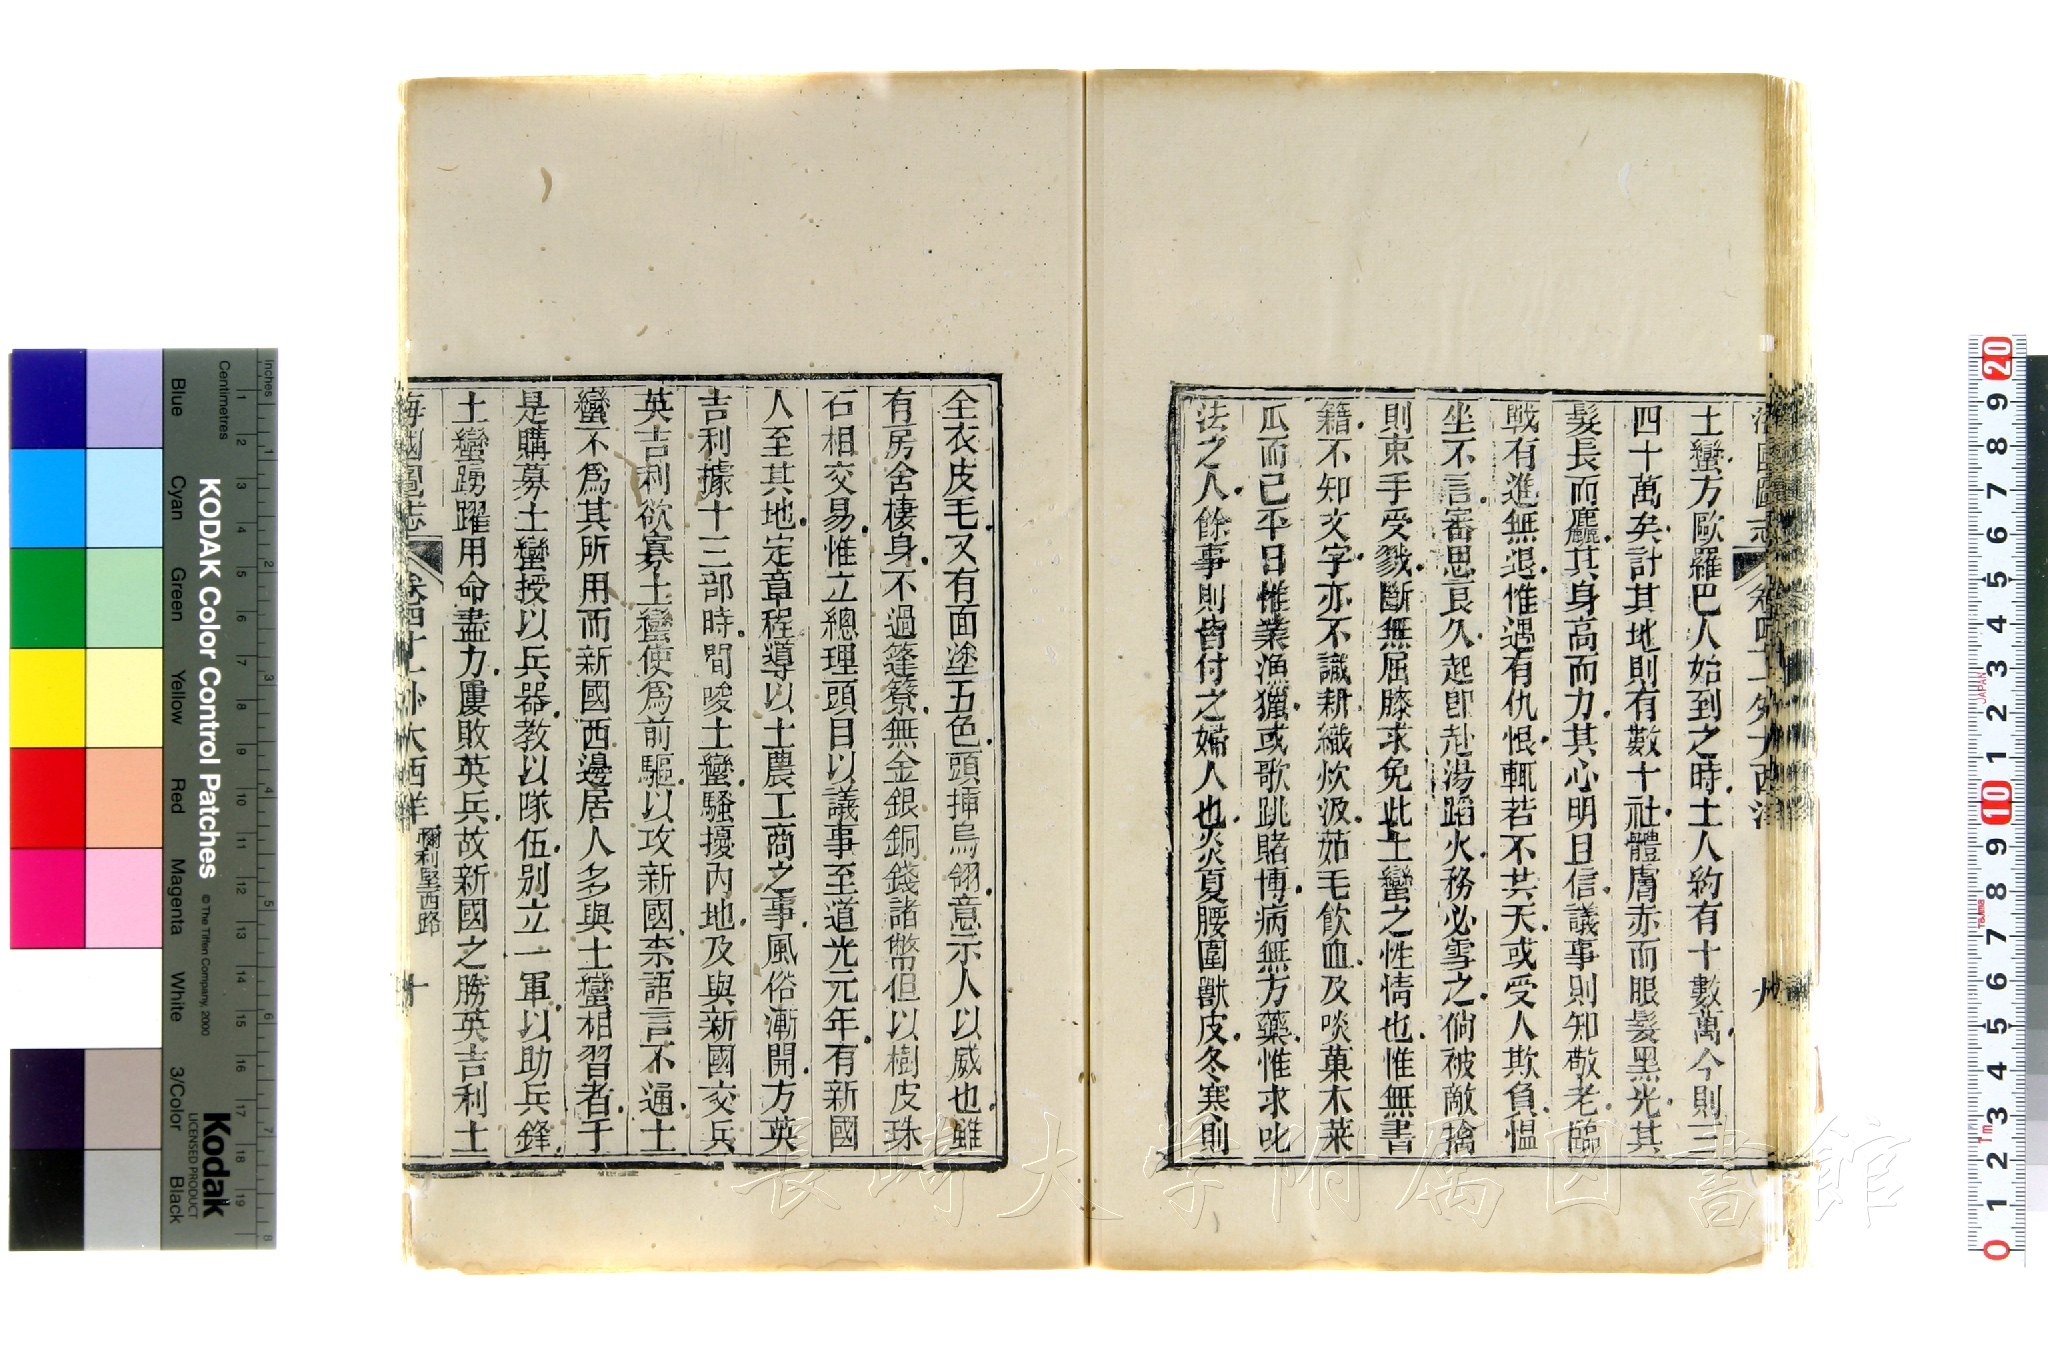 土蠻方歐羅巴人始到之時土人約有十數萬今則三
四十萬矣計其地則有數十社體膚赤而眼髮黑光其
髮長而麤其身高而力其心明且信議事則知敬老臨
戰有進無退惟遇有仇恨輒若不共天或受人欺負慍
坐不言審思哀久起卽赴湯蹈火務必雪之倘被敵擒
則束手受戮斷無屈膝求免此土蠻之性情也惟無書
籍不知文字亦不識耕織炊汲茹毛飲血及啖菓木菜
瓜而已平日惟業漁獵或歌跳賭博病無方藥惟求叱
法之人餘事則皆付之婦人也炎夏腰圍獸皮冬寒則
全衣皮毛又有面塗五色頭揷烏翎意示人以威也雖
有房舍棲身不過篷寮無金銀銅錢諸幣但以樹皮珠
石相交易惟立總理頭目以議事至道光元年有新國
人至其地定章程導以士農工商之事風俗漸開方英
吉利據十三部時間唆土蠻騷擾內地及與新國交兵
英吉利欲寡土蠻使爲前驅以攻新國柰語言不通土
蠻不爲其所用而新國西邊居人多與土蠻相習者于
是購募土蠻授以兵器教以隊伍别立一軍以助兵鋒
土蠻踴躍用命盡力屢敗英兵故新國之勝英吉利土
海國圖志 卷四十一外大西洋 彌利堅西路 十
KODAK Color Control Patches
© The Tiffen Company, 2000
Kodak
LICENSED PRODUCT
Centimetres
Inches
Blue
Cyan
Green
Yellow
Red
Magenta
White
3/Color
Black
長崎大学附属図書館